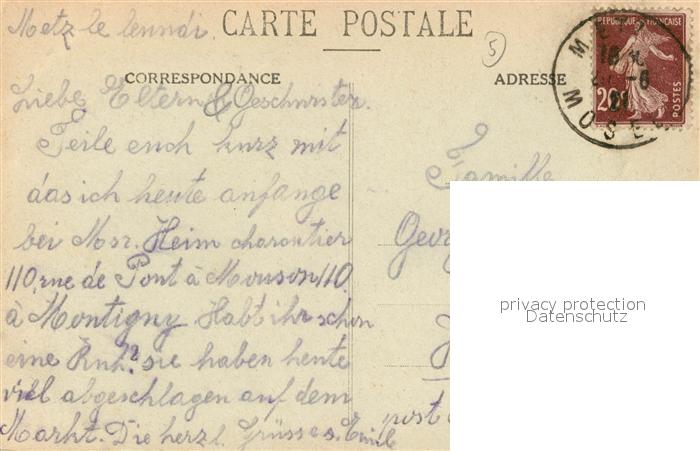 Metz le lenndi.
CARTE POSTALE
5
CORRESPONDANCE
ADRESSE
REPUBLIQUE FRANÇAISE
20c
POSTES
METZ
MOSELLE
Liebe Eltern & Geschwister.
Teile euch kurz mit
das ich heute anfange
bei Msr. Heim charcutier
110, rue de Pont à Mouson 110
à Montigny Habt ihr schon
eine Kuh? sie haben heute
viel abgeschlagen auf dem
Markt. Die herzl. Grüsse s. Emil
Famille
Georg
post
privacy protection
Datenschutz